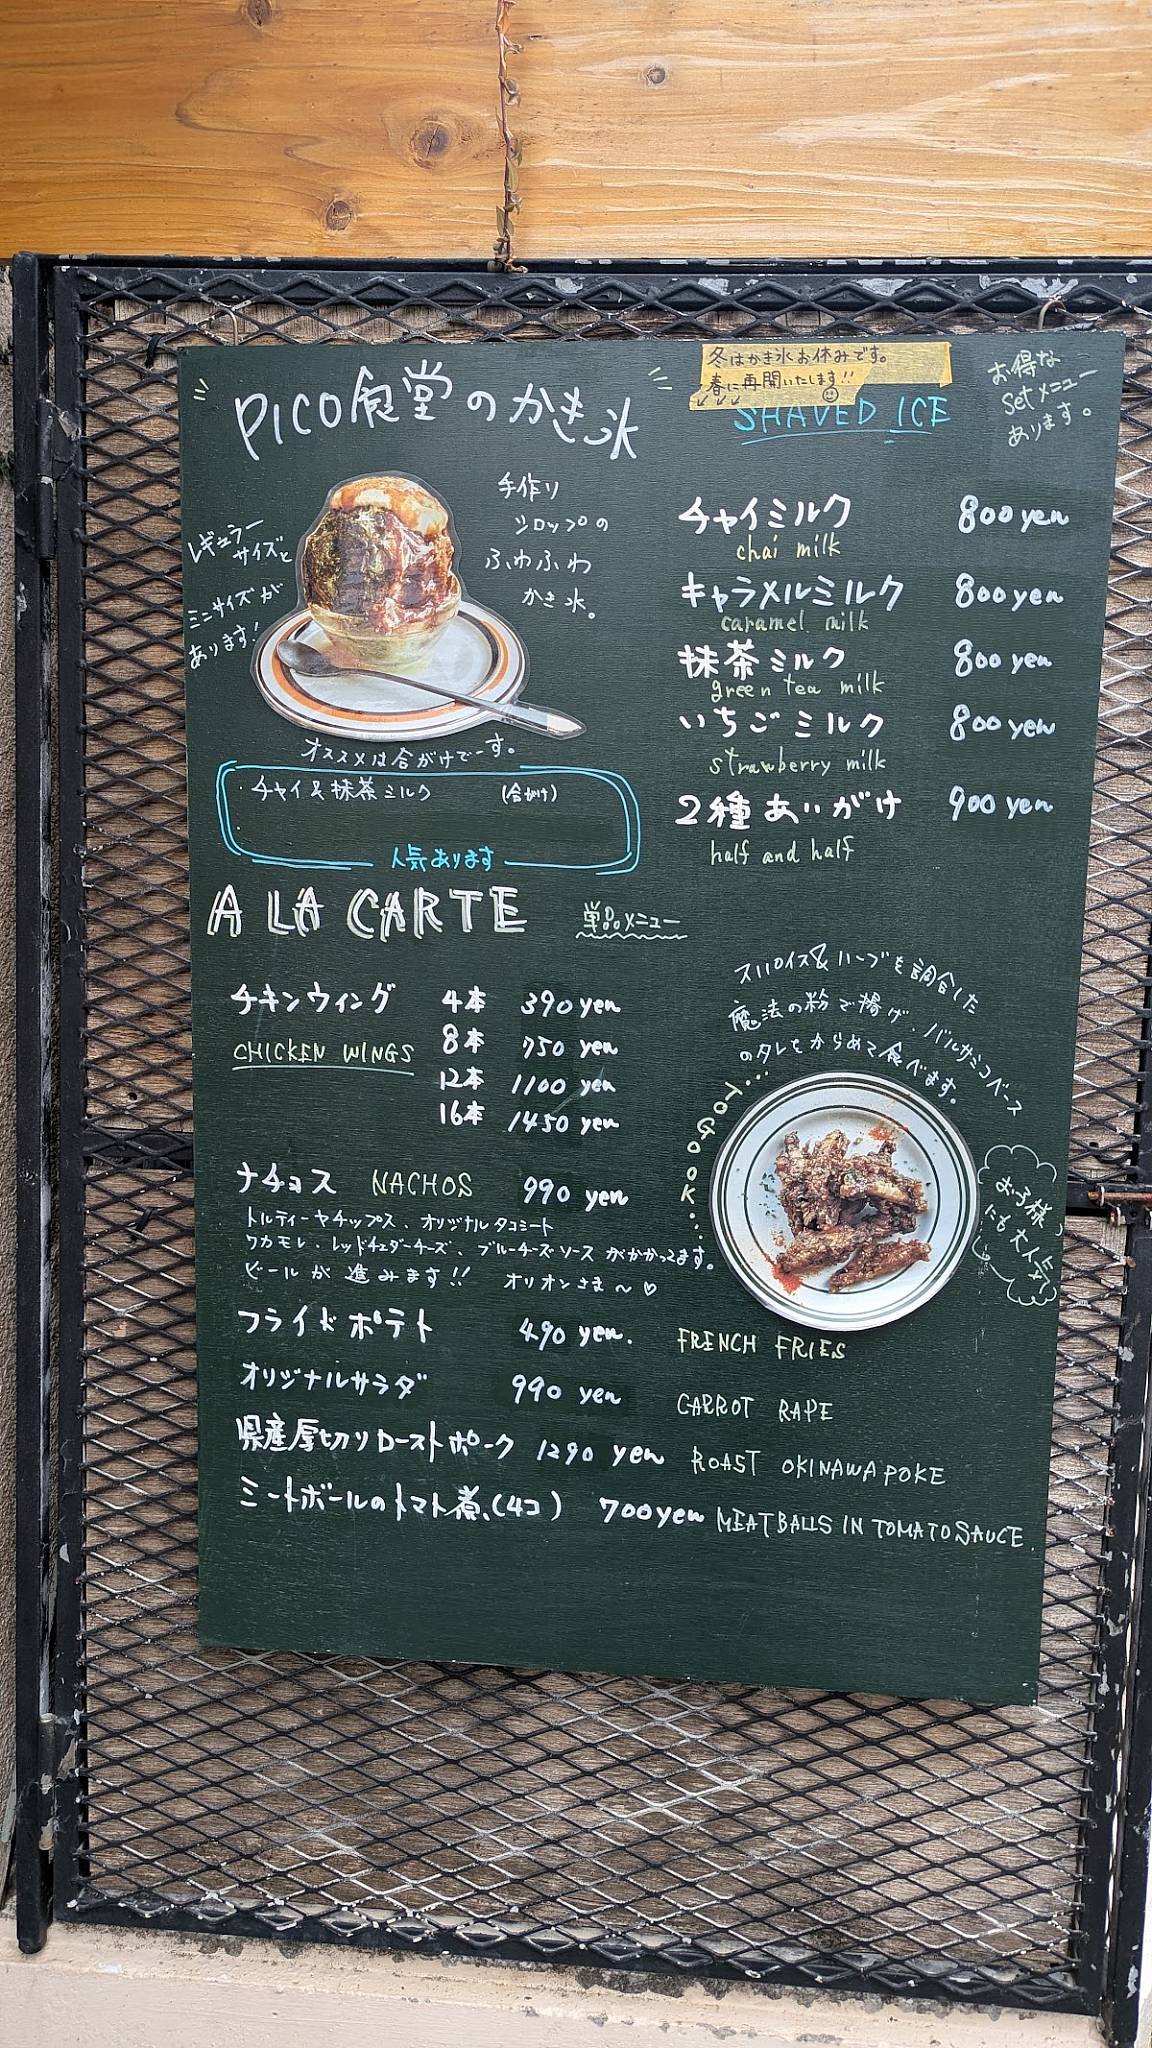 PICO食堂のかき氷
冬はかき氷お休みです。
春に再開いたします!!
SHAVED ICE
お得な
Setメニュー
あります。
手作り
シロップの
ふわふわ
かき氷。
レギュラー
サイズと
ミニサイズが
あります!
オススメは合がけでーす。
・チャイ&抹茶ミルク (合がけ)
人気あります
チャイミルク 800yen
chai milk
キャラメルミルク 800yen
caramel milk
抹茶ミルク 800yen
green tea milk
いちごミルク 800yen
strawberry milk
2種あいがけ 900yen
half and half
A LA CARTE 単品メニュー
チキンウィング 4本 390yen
CHICKEN WINGS 8本 750yen
12本 1100yen
16本 1450yen
スパイス&ハーブを調合した
魔法の粉で揚げ、バルサミコベース
のタレをからめて食べます。
...TOGO OK...
お子様
にも大人気
ナチョス NACHOS 990yen
トルティーヤチップス、オリジナルタコミート
ワカモレ、レッドチェダーチーズ、ブルーチーズソースがかかってます。
ビールが進みます!! オリオンさま〜♡
フライドポテト 490yen. FRENCH FRIES
オリジナルサラダ 990yen CARROT RAPE
県産厚切りローストポーク 1290yen ROAST OKINAWA POKE
ミートボールのトマト煮(4コ) 700yen MEATBALLS IN TOMATO SAUCE.